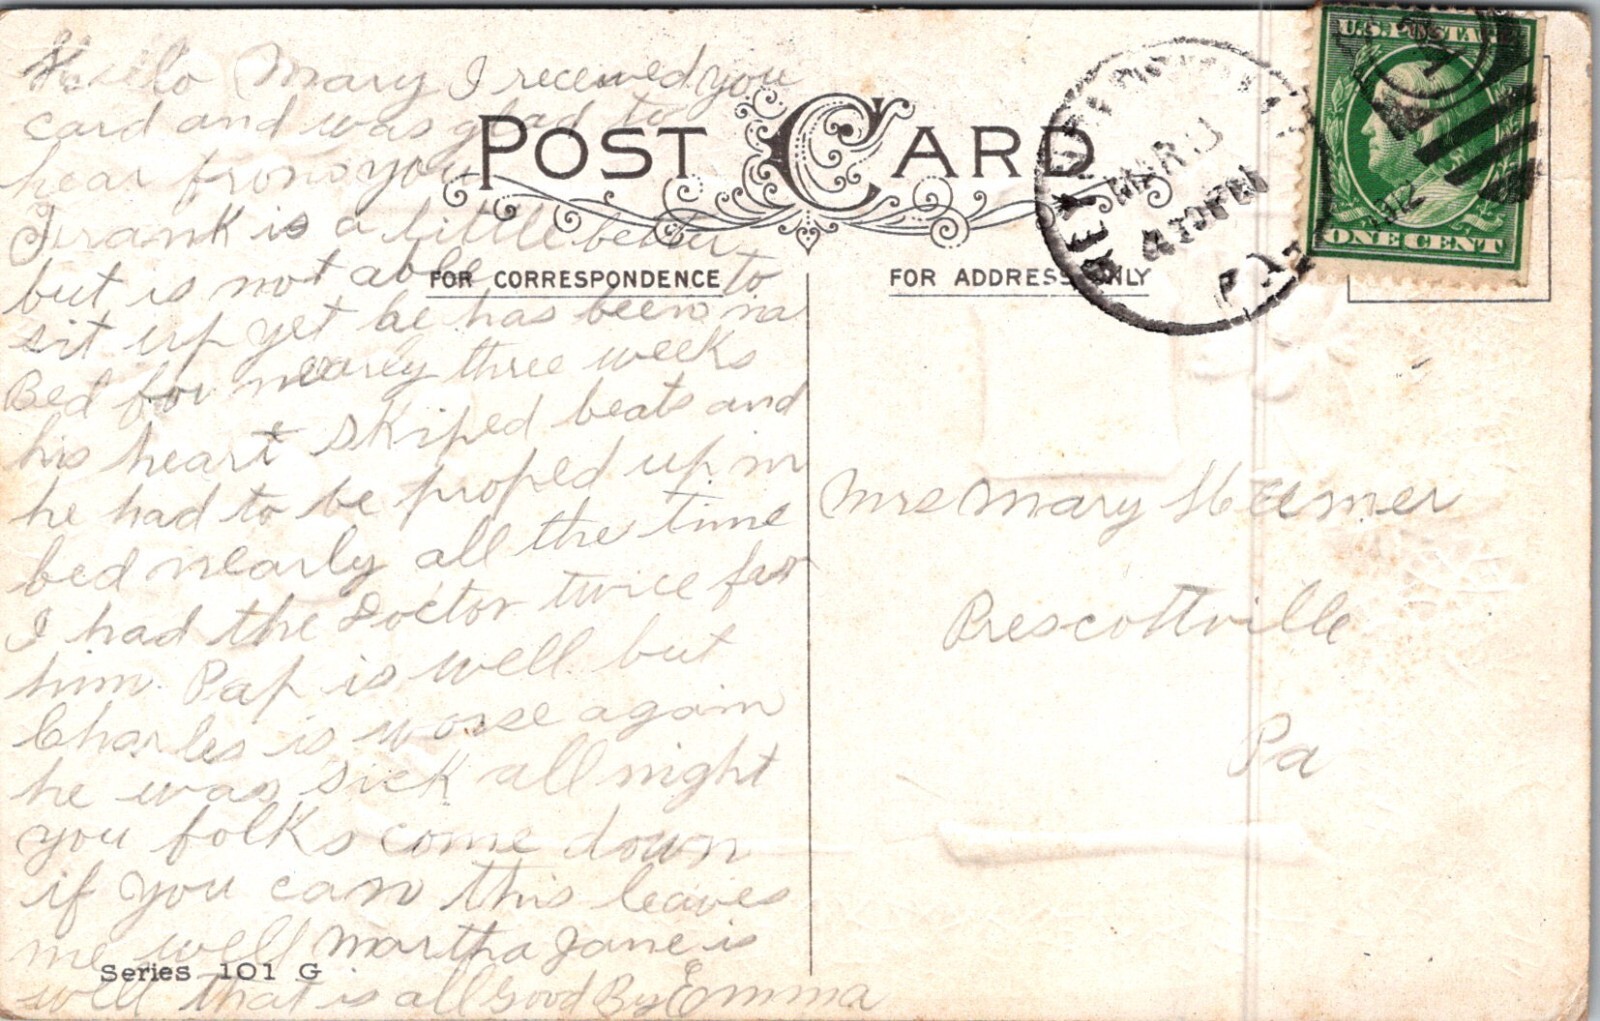 Hello Mary I received you
card and was glad to
hear from you
Frank is a little better
but is not able to
sit up yet he has been in a
Bed for nearly three weeks
his heart skiped beats and
he had to be proped up in
bed nearly all the time
I had the Doctor twice for
him. Pap is well but
Charles is worse again
he was sick all night
you folks come down
if you can this leaves
me well Martha Jane is
well that is all Good By Emma
Series 101 G
POST CARD
FOR CORRESPONDENCE
FOR ADDRESS ONLY
MAR
4 30 PM
1912
PA
U.S. POSTAGE
ONE CENT
Mrs Mary
Prescottville
Pa